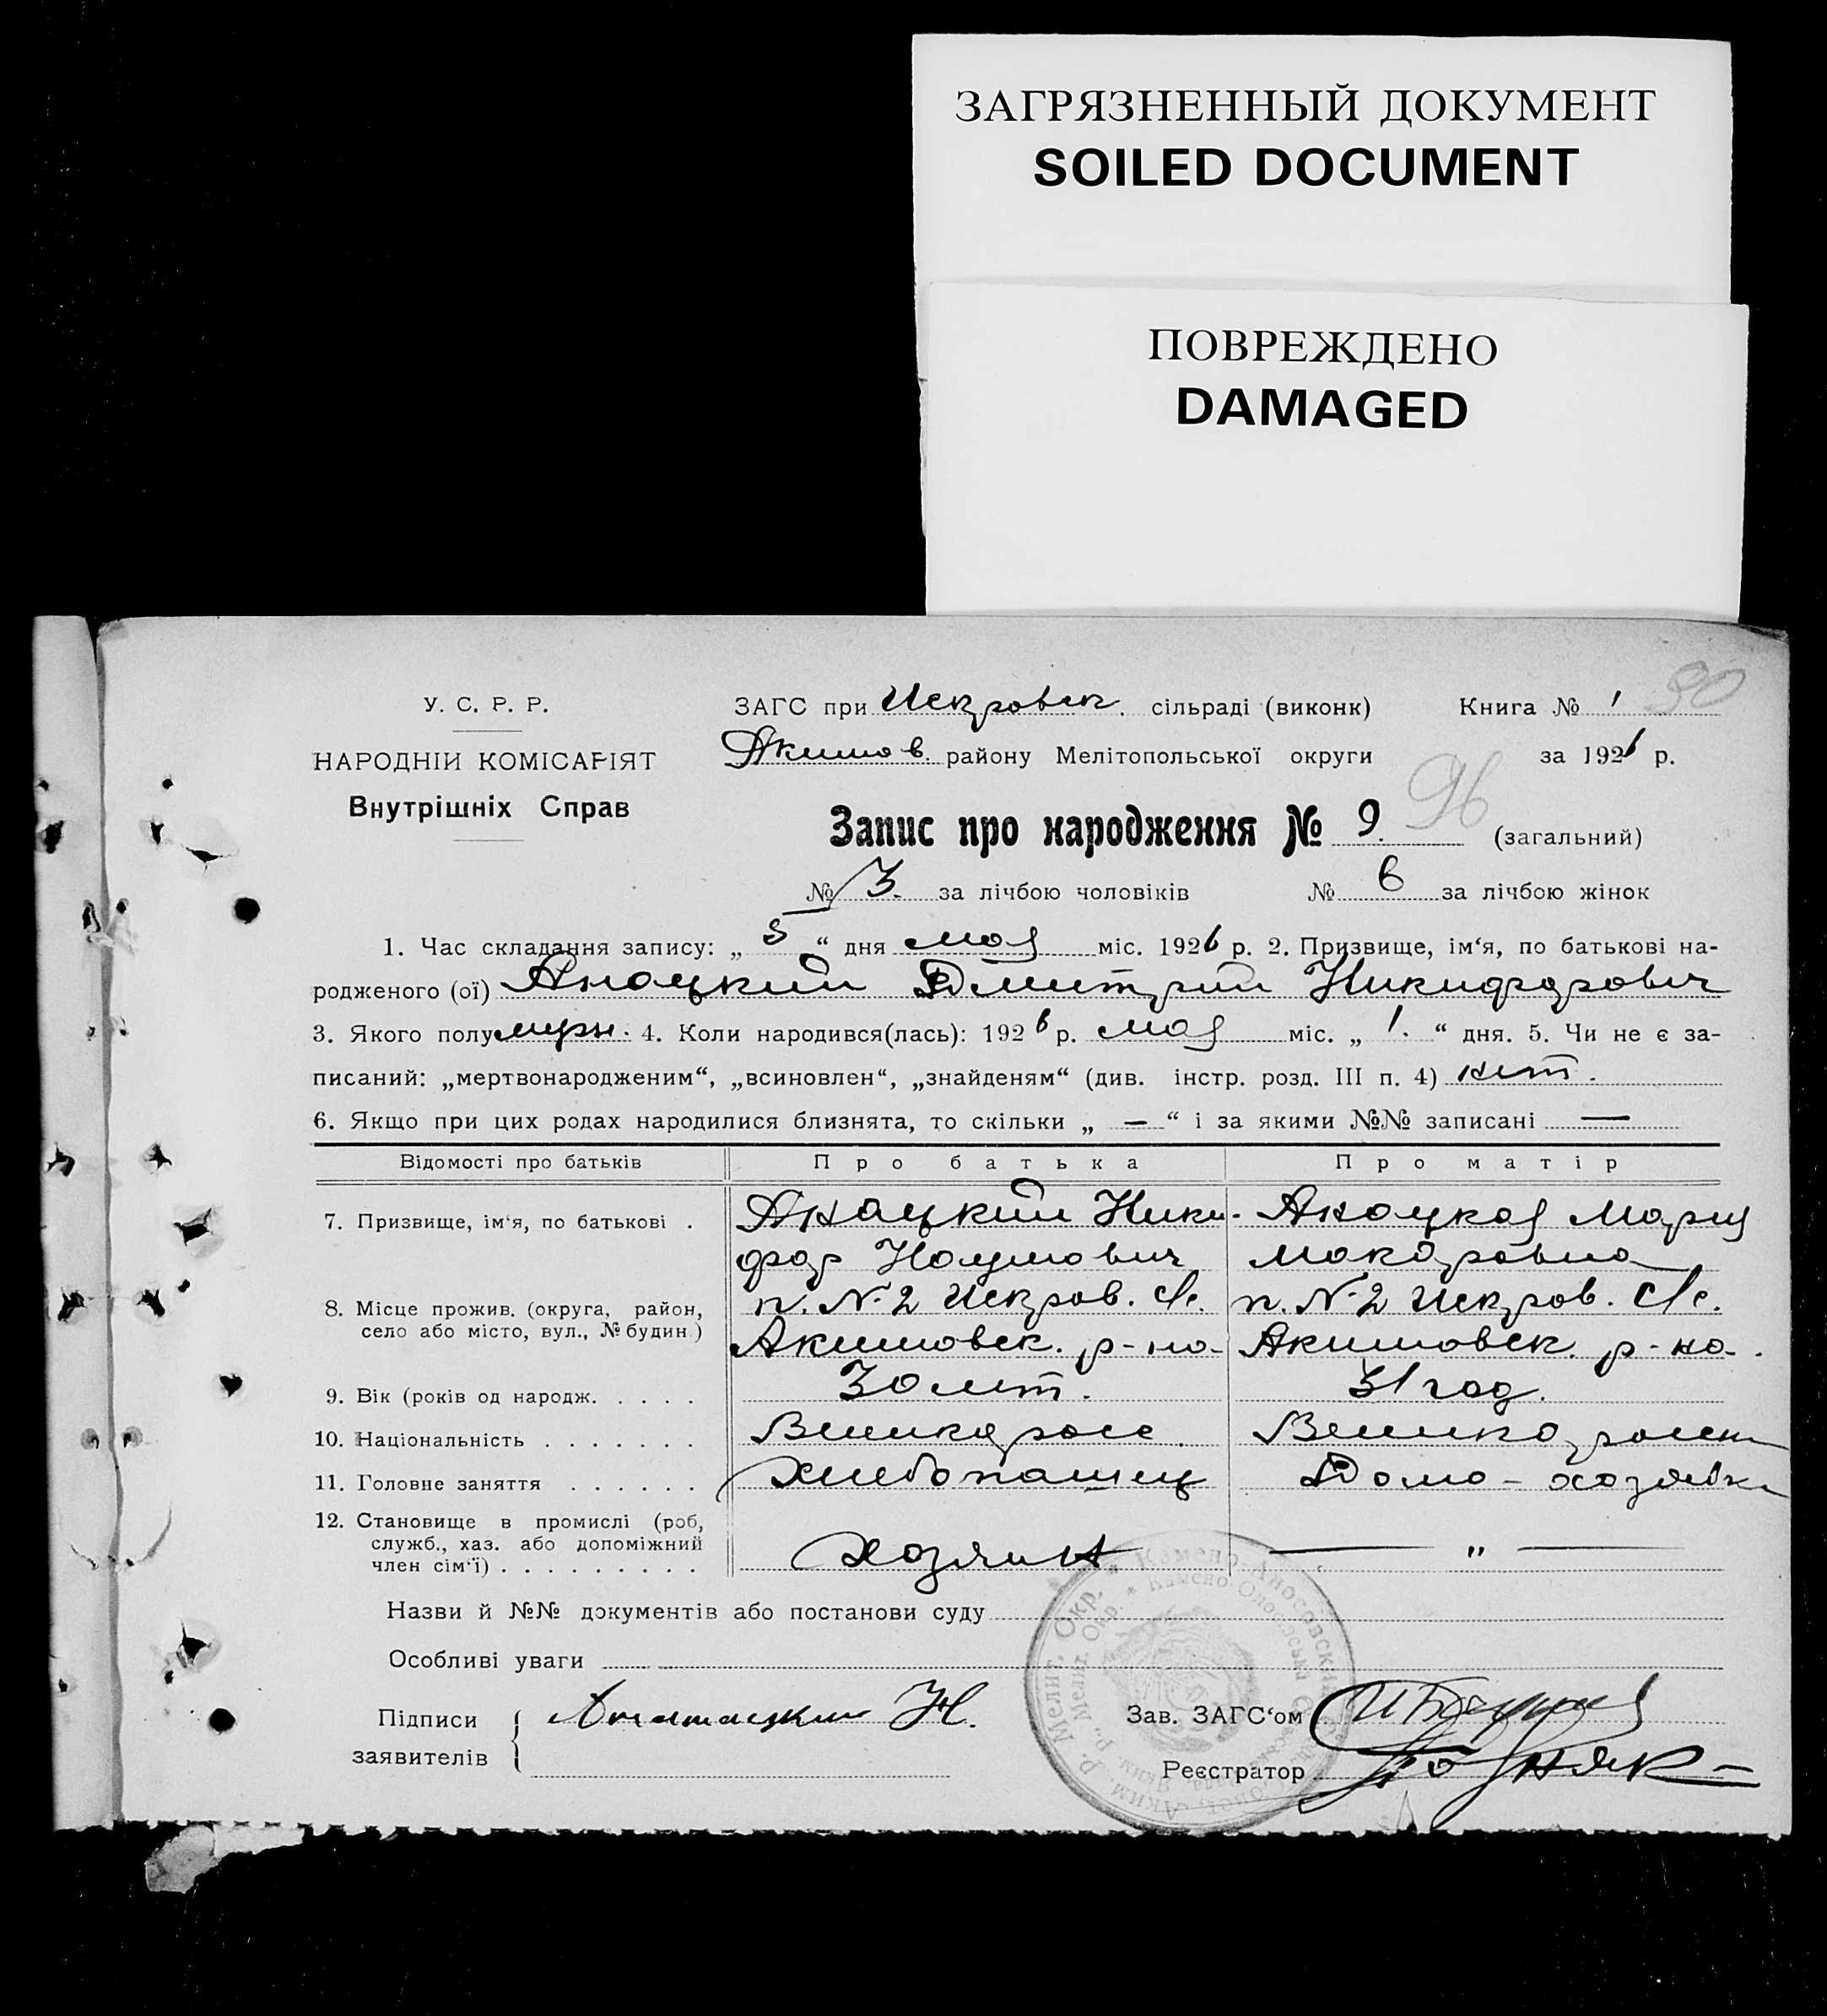 ЗАГРЯЗНЕННЫЙ ДОКУМЕНТ
SOILED DOCUMENT
ПОВРЕЖДЕНО
DAMAGED
90
У. С. Р. Р.
ЗАГС при Искровск. сільраді (виконк) Книга № 1
НАРОДНІИ КОМІСАРІЯТ
Акимов. району Мелітопольської округи за 1926 р.
Внутрішніх Справ
96
Запис про народження № 9. (загальний)
№ 3. за лічбою чоловіків № 6 за лічбою жінок
1. Час складання запису: „ 5 “ дня мая міс. 1926 р. 2. Призвище, ім‘я, по батькові на-
родженого (ої) Аноцкий Дмитрий Никифорович
3. Якого полу мужс. 4. Коли народився(лась): 1926 р. мая міс. „ 1. “ дня. 5. Чи не є за-
писаний: „мертвонародженим“, „всиновлен“, „знайденям“ (див. інстр. розд. III п. 4) нет.
6. Якщо при цих родах народилися близнята, то скільки „ — “ і за якими №№ записані —
Відомості про батьків Про батька Про матір
7. Призвище, ім‘я, по батькові . Аноцкий Ники- Аноцкая Мария
фор Наумович Макаровна
8. Місце прожив. (округа, район, п. №2 Искров. с/с. п. №2 Искров. с/с.
село або місто, вул., № будин.) Акимовск. р-на. Акимовск. р-на.
9. Вік (років од народж. . . . . 30 лет. 31 год.
10. Національність . . . . . . . Великоросс.
11. Головне заняття . . . . . . Хлебопашец Домо-хозяйка
12. Становище в промислі (роб,
служб., хаз. або допоміжний
член сім‘ї) . . . . . . . . . Хозяин — " —
Назви й №№ документів або постанови суду
Особливі уваги
Підписи
заявителів
Зав. ЗАГС‘ом
Реєстратор Позняк